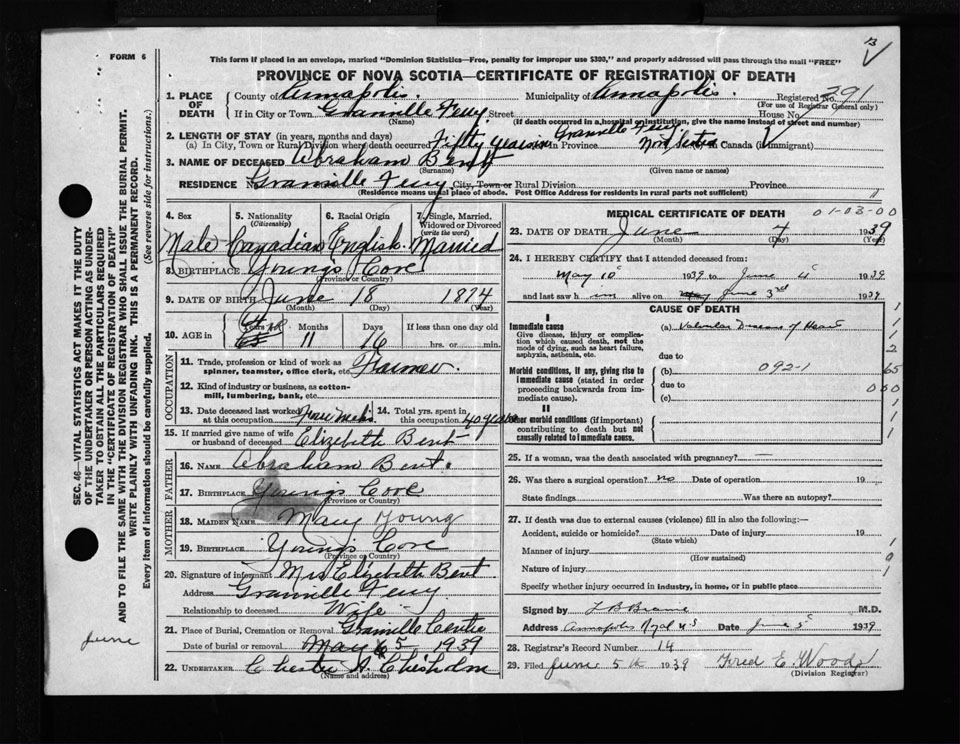 FORM 6
This form if placed in an envelope, marked "Dominion Statistics—Free, penalty for improper use $300," and properly addressed will pass through the mail "FREE"
PROVINCE OF NOVA SCOTIA—CERTIFICATE OF REGISTRATION OF DEATH
1. PLACE OF DEATH County of Annapolis. Municipality of Annapolis. Registered No. 291
(For use of Registrar General only)
If in City or Town Granville Ferry Street House No.
(Name) (If death occurred in a hospital or institution, give the name instead of street and number)
2. LENGTH OF STAY (in years, months and days) Granville Ferry
(a) In City, Town or Rural Division where death occurred Fifty years in Province Nova Scotia in Canada (if immigrant)
3. NAME OF DECEASED Abraham Bent
(Surname) (Given name or names)
RESIDENCE No. Granville Ferry City, Town or Rural Division Province
(Residence means usual place of abode. Post Office Address for residents in rural parts not sufficient)
SEC. 46—VITAL STATISTICS ACT MAKES IT THE DUTY
OF THE UNDERTAKER OR PERSON ACTING AS UNDER-
TAKER TO OBTAIN ALL THE PARTICULARS REQUIRED
IN THE "CERTIFICATE OF REGISTRATION OF DEATH"
AND TO FILE THE SAME WITH THE DIVISION REGISTRAR WHO SHALL ISSUE THE BURIAL PERMIT.
WRITE PLAINLY WITH UNFADING INK. THIS IS A PERMANENT RECORD.
Every item of information should be carefully supplied. (See reverse side for instructions.)
June
4. Sex 5. Nationality (Citizenship) 6. Racial Origin 7. Single, Married, Widowed or Divorced (write the word)
Male Canadian English. Married
8. BIRTHPLACE Young's Cove
(Province or Country)
9. DATE OF BIRTH June 18 1874
(Month) (Day) (Year)
10. AGE in Years Months Days If less than one day old
64 11 16 hrs. or min.
OCCUPATION
11. Trade, profession or kind of work as spinner, teamster, office clerk, etc. Farmer.
12. Kind of industry or business, as cotton-mill, lumbering, bank, etc.
13. Date deceased last worked at this occupation
14. Total yrs. spent in this occupation 40 years
15. If married give name of wife or husband of deceased Elizebeth Bent
FATHER
16. NAME Abraham Bent.
17. BIRTHPLACE Young's Cove
(Province or Country)
MOTHER
18. MAIDEN NAME Mary Young
19. BIRTHPLACE Young's Cove
(Province or Country)
20. Signature of informant Mrs Elizebeth Bent
Address Granville Ferry
Relationship to deceased Wife
21. Place of Burial, Cremation or Removal Granville Centre
Date of burial or removal May 5 1939
22. UNDERTAKER Chester A. Chisholm
(Name and address)
MEDICAL CERTIFICATE OF DEATH
01-03-00
23. DATE OF DEATH June 4 1939
(Month) (Day) (Year)
24. I HEREBY CERTIFY that I attended deceased from:
May 10 1939 to June 4 1939
and last saw him alive on June 3rd 1939
CAUSE OF DEATH
I
Immediate cause (a) Valvular Disease of Heart
Give disease, injury or complication which caused death, not the mode of dying, such as heart failure, asphyxia, asthenia, etc.
due to
Morbid conditions, if any, giving rise to immediate cause (stated in order proceeding backwards from immediate cause). (b) 092-1
due to
(c)
II
Other morbid conditions (if important) contributing to death but not causally related to immediate cause.
1
1
2
65
000
1
1
1
25. If a woman, was the death associated with pregnancy? —
26. Was there a surgical operation? no Date of operation 19
State findings Was there an autopsy?
27. If death was due to external causes (violence) fill in also the following:—
Accident, suicide or homicide? Date of injury 19
(State which)
Manner of injury
(How sustained)
Nature of injury
1
0
1
Specify whether injury occurred in industry, in home, or in public place
Signed by M.D.
Address Annapolis Royal N.S Date June 5 1939
28. Registrar's Record Number 14
29. Filed June 5th 1939 Fred E. Woods
(Division Registrar)